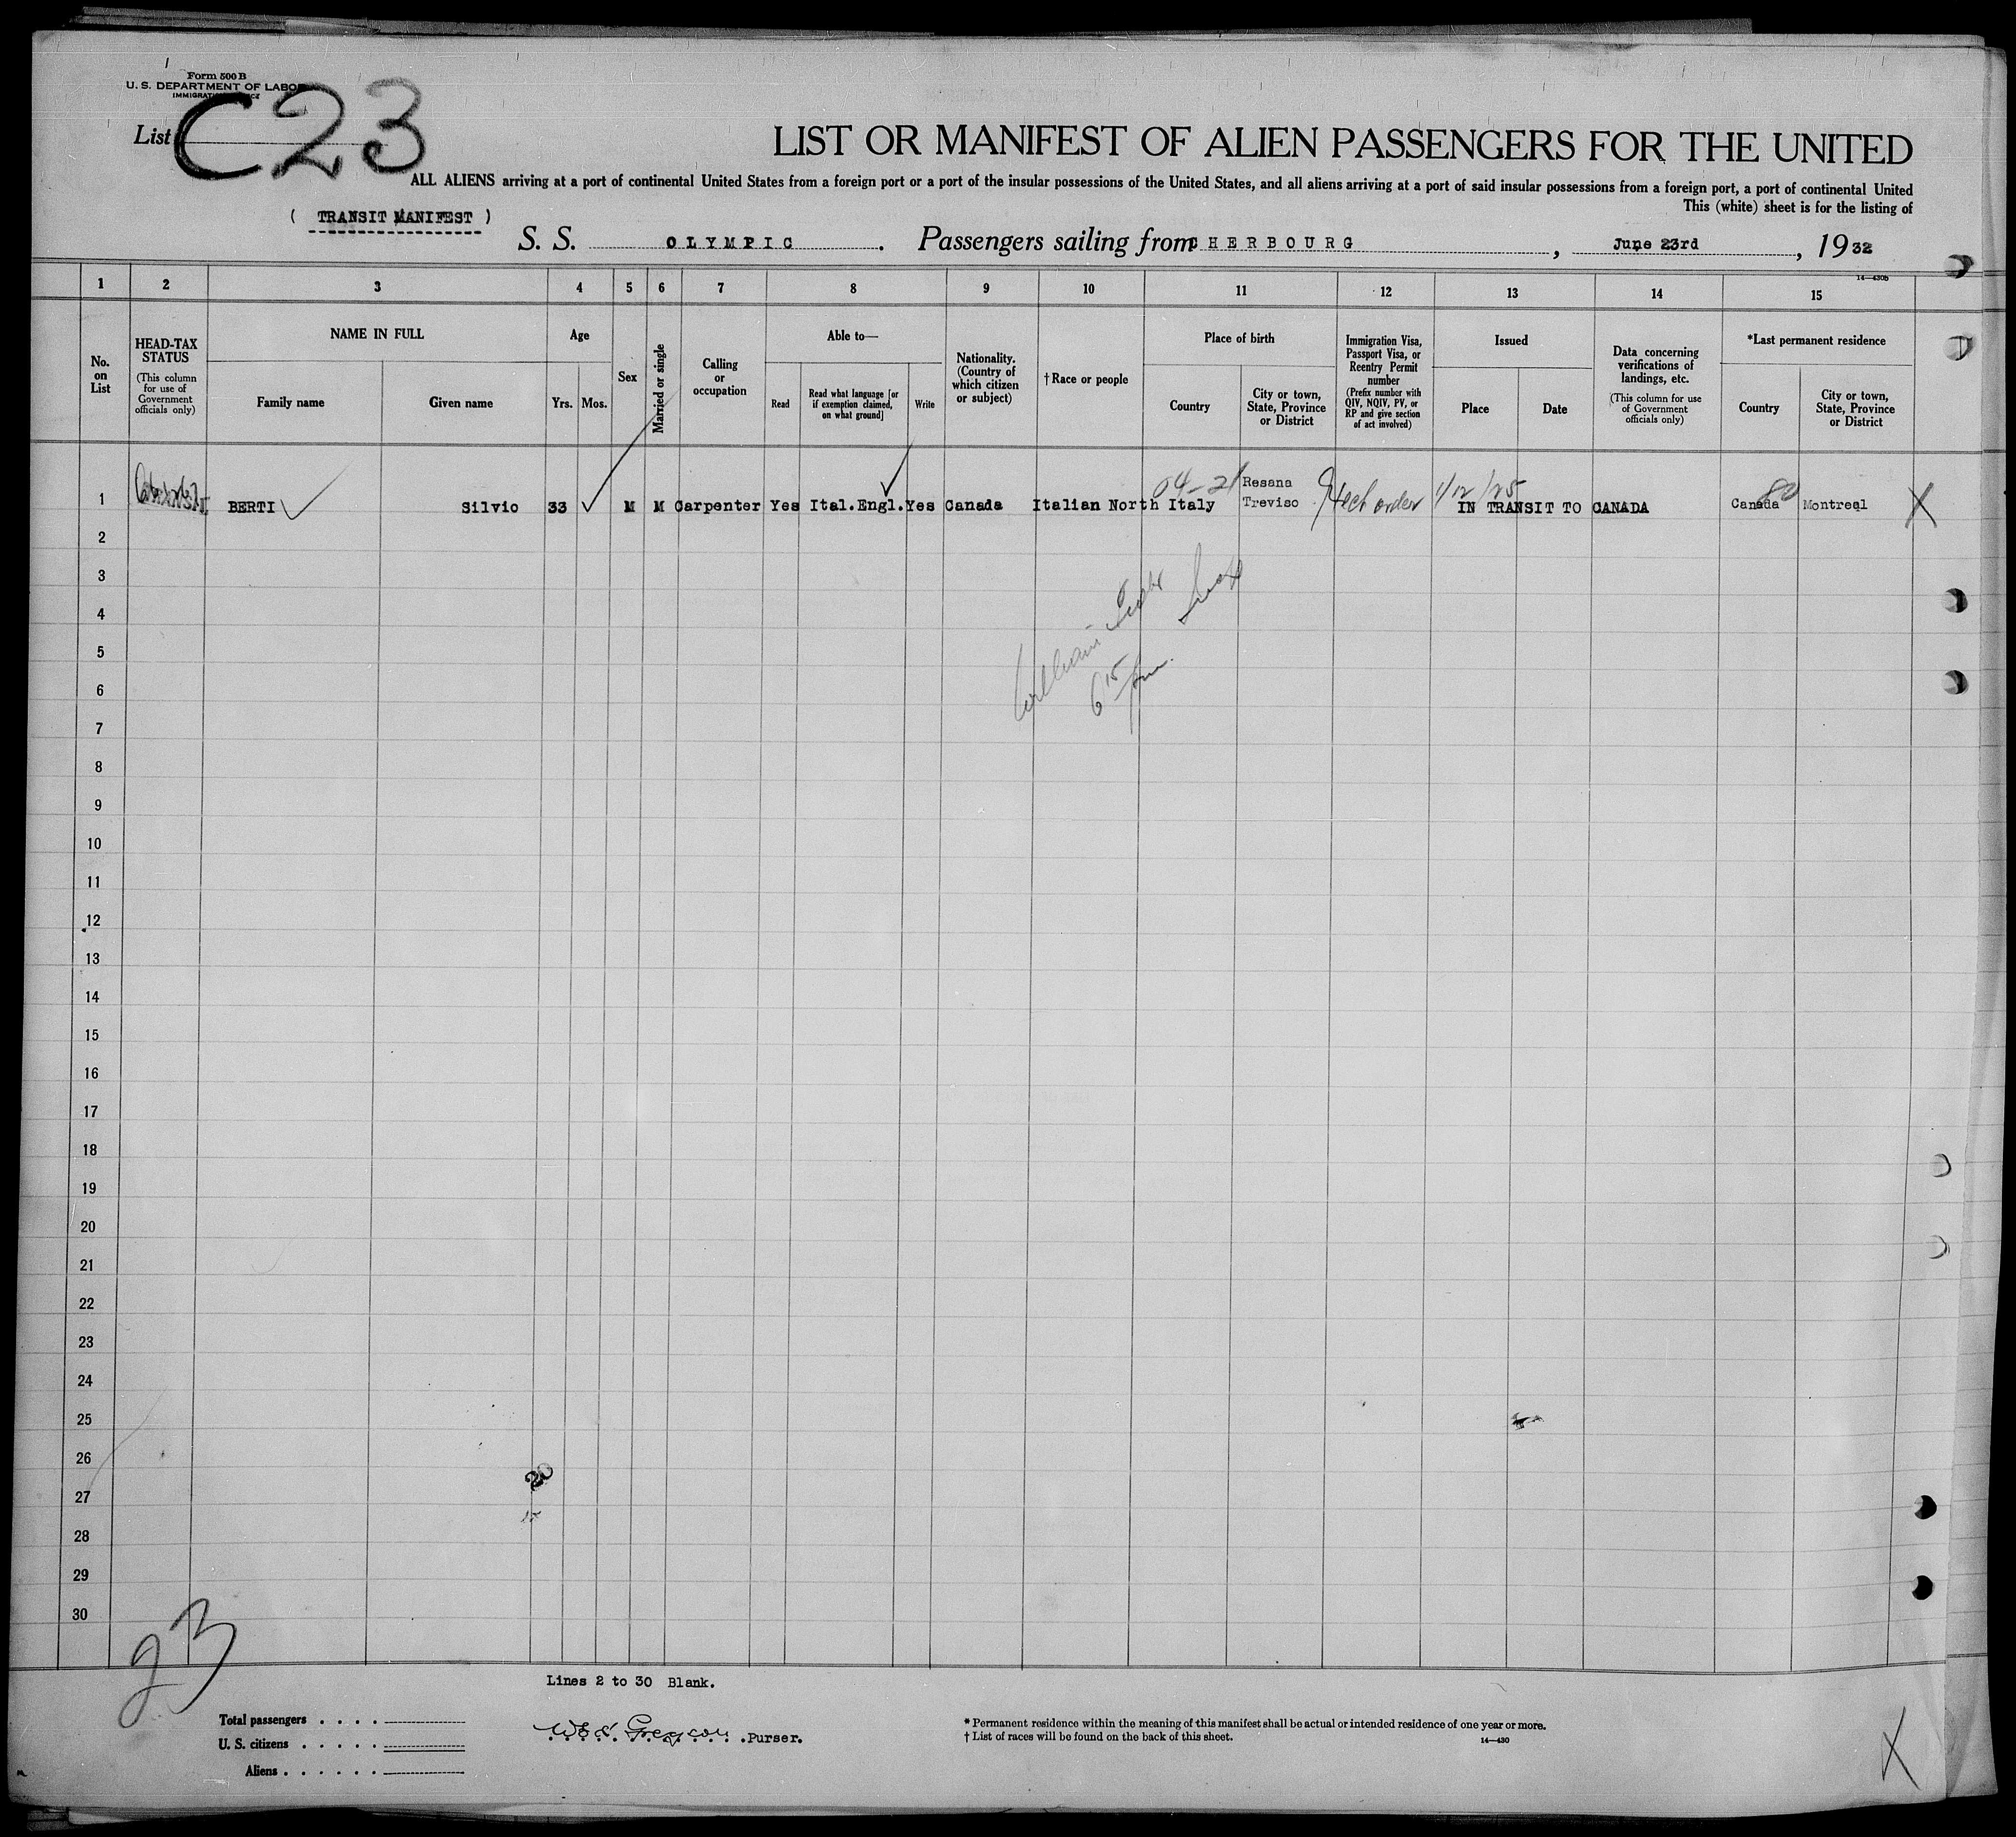 Form 500 B
U. S. DEPARTMENT OF LABOR
IMMIGRATION SERVICE
List C23
LIST OR MANIFEST OF ALIEN PASSENGERS FOR THE UNITED
ALL ALIENS arriving at a port of continental United States from a foreign port or a port of the insular possessions of the United States, and all aliens arriving at a port of said insular possessions from a foreign port, a port of continental United
This (white) sheet is for the listing of
( TRANSIT MANIFEST )
S. S. OLYMPIC. Passengers sailing from CHERBOURG, June 23rd, 1932
14—430b
1 2 3 4 5 6 7 8 9 10 11 12 13 14 15
No. on List
HEAD-TAX STATUS
(This column for use of Government officials only)
NAME IN FULL
Family name
Given name
Age
Yrs. Mos.
Sex
Married or single
Calling or occupation
Able to—
Read
Read what language [or if exemption claimed, on what ground]
Write
Nationality. (Country of which citizen or subject)
† Race or people
Place of birth
Country
City or town, State, Province or District
Immigration Visa, Passport Visa, or Reentry Permit number
(Prefix number with QIV, NQIV, PV, or RP and give section of act involved)
Issued
Place
Date
Data concerning verifications of landings, etc.
(This column for use of Government officials only)
*Last permanent residence
Country
City or town, State, Province or District
04-21 1/12/25 80
1 BERTI Silvio 33 M M Carpenter Yes Ital.Engl. Yes Canada Italian North Italy Resana Treviso order IN TRANSIT TO CANADA Canada Montreal X
2
3
4
5
6
7
8
9
10
11
12
13
14
15
16
17
18
19
20
21
22
23
24
25
26
27
28
29
30
William
6 15 pm.
23
Lines 2 to 30 Blank.
Total passengers . . . .
U. S. citizens . . . . .
Aliens . . . . . .
Purser.
* Permanent residence within the meaning of this manifest shall be actual or intended residence of one year or more.
† List of races will be found on the back of this sheet.
14—430
X